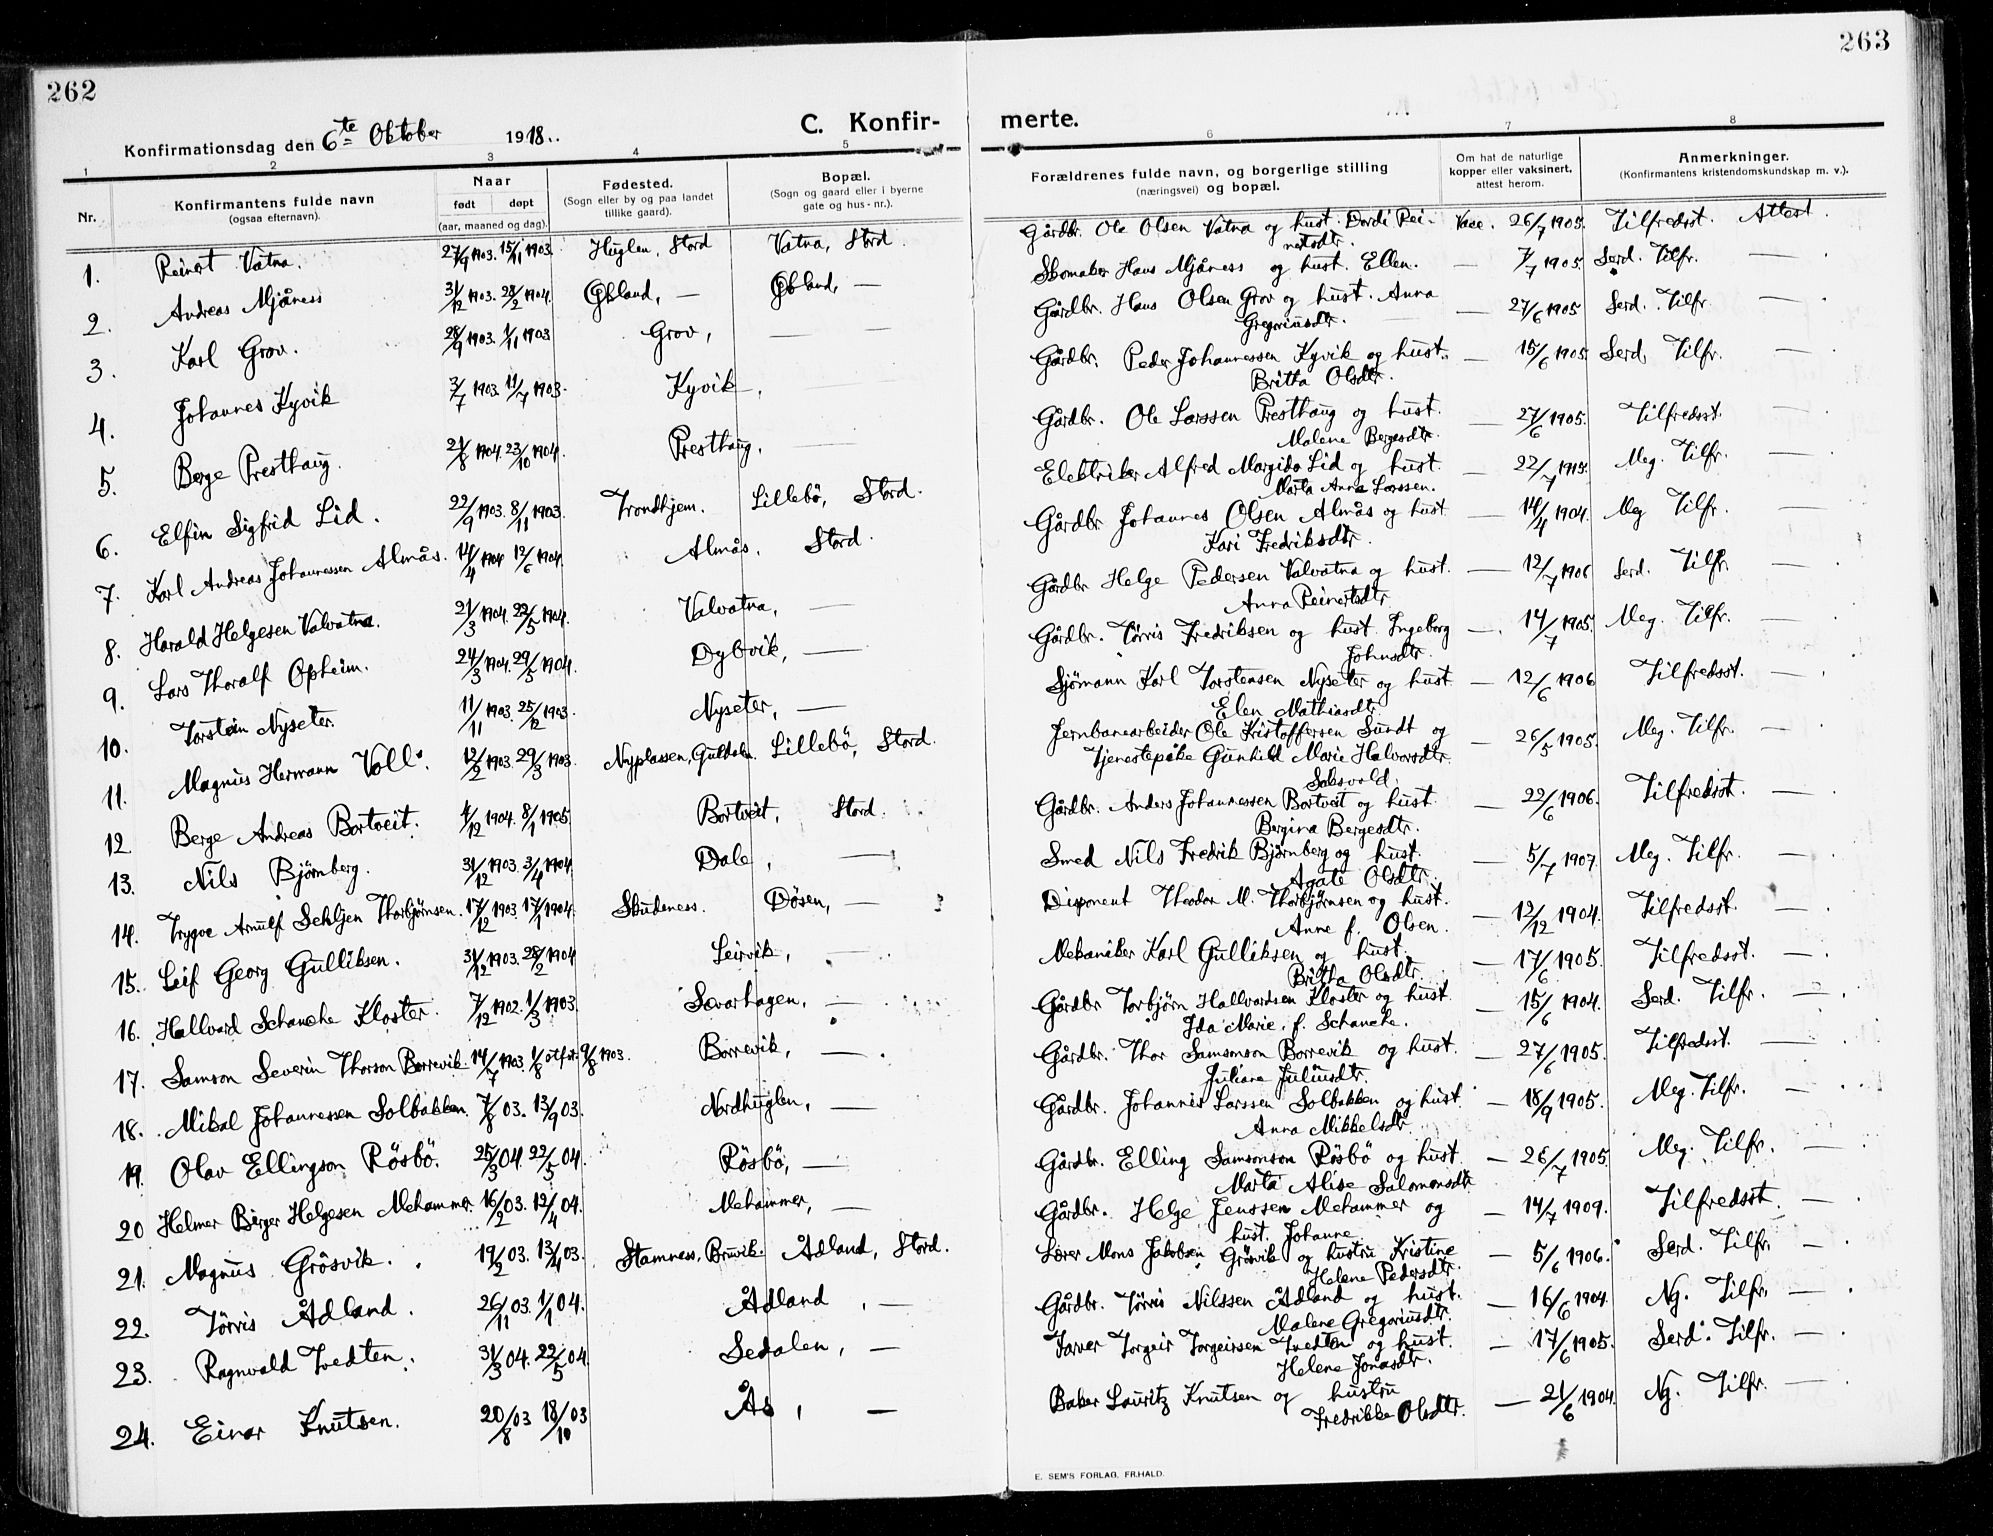 262
263
Konfirmationsdag den 6te Oktober 1918.
C. Konfir-
merte.
1 2 3 4 5 6 7 8
Nr.
Konfirmantens fulde navn
(ogsaa efternavn).
Naar
født døpt
(aar, maaned og dag).
Fødested.
(Sogn eller by og paa landet
tillike gaard).
Bopæl.
(Sogn og gaard eller i byerne
gate og hus-nr.).
Forældrenes fulde navn, og borgerlige stilling
(næringsvei) og bopæl.
Om hat de naturlige
kopper eller vaksinert,
attest herom.
Anmerkninger.
(Konfirmantens kristendomskundskap m. v.).
1. Reinert Vatna. 27/9 1903. 15/11 1903. Huglen, Stord Vatna, Stord. Gårdbr. Ole Olsen Vatna og hust. Dordi Rei- Vacc. 26/7 1905. Tilfredsst. Attest.
nertsdtr.
2. Andreas Mjåness 31/12 1903. 28/2 1904. Økland, — Økland, — Skomaker Hans Mjåness og hust. Ellen. — 7/7 1905. Serd. Tilfr. —
3. Karl Grov. 28/9 1903. 1/11 1903 Grov, — — Gårdbr. Hans Olsen Grov og hust. Anna — 27/6 1905 Serd. Tilfr. —
Gregoriusdtr.
4. Johannes Kyvik 3/7 1903. 11/7 1903. Kyvik, — Gårdbr. Peder Johannessen Kyvik og hust. — 15/6 1905. Serd. Tilfr. —
Britta Olsdtr.
5. Berge Presthaug. 21/8 1904. 23/10 1904. Presthaug, — Gårdbr. Ole Larssen Presthaug og hust. — 27/6 1905. Tilfredsst. —
Malene Bergesdtr.
6. Elfin Sigfrid Lid. 22/9 1903. 8/11 1903. Trondhjem. Lillebö, Stord. Elektriker Alfred Margido Lid og hust. — 22/7 1915. Meg. Tilfr. —
Marta Anna Larssen.
7. Karl Andreas Johannessen Almås. 14/4 1904 12/6 1904. Almås, Stord. Gårdbr Johannes Olsen Almås og hust — 14/4 1904. Meg Tilfr. —
Kari Fredriksdtr.
8. Harald Helgesen Valvatna. 21/3 1904. 22/5 1904. Valvatna, — Gårdbr Helge Pedersen Valvatna og hust. — 12/7 1906 Serd. Tilfr. —
Anna Reinertsdtr
9. Lars Thoralf Opheim. 24/3 1904. 29/5 1904. Dybvik, — Gårdbr. Tørris Fredriksen og hust. Ingeborg —. 14/7 1905. Meg. Tilfr. —
Johnsdtr.
10. Torstein Nyseter. 11/11 1903. 25/12 1903. Nyseter, — Sjömann Karl Torstensen Nyseter og hust — 12/6 1906 Tilfredsst. —
Elen Mathiasdtr
11. Magnus Hermann Voll. 12/2 1903. 29/3 1903. Nyplassen, Guldalen. Lillebö, Stord. Jernbanearbeider Ole Kristoffersen Sundt og — 26/5 1905. Meg. Tilfr. —
Tjenestepike Gunhild Marie Halvorsdtr.
Soksvold.
12 Berge Andreas Bortveit. 4/12 1904. 8/1 1905. Bortveit, Stord. Gårdbr. Anders Johannessen Bortveit og hust. — 22/6 1906. Tilfredsst. —
Bergina Bergesdtr.
13. Nils Bjørnberg. 31/12 1903. 3/4 1904. Dale, — Smed Nils Fredrik Bjørnberg og hust. — 5/7 1907. Meg. Tilfr. —
Agate Olsdtr.
14. Trygve Arnulf Sehljen Thorbjørnsen. 17/12 1903 17/1 1904. Skudeness. Døsen, — Disponent Theodor M. Thorbjørnsen og hust. — 12/12 1904. Tilfredsst. —
Anne f. Olsen.
15. Leif Georg Gulliksen. 31/12 1903. 28/2 1904 Leirvik, — Mekaniker Karl Gulliksen og hust. — 17/6 1905. Tilfredsst. —
Britha Olsdtr.
16. Hallvard Schanche Kloster. 7/12 1902. 1/3 1903. Sævarhagen, — Gårdbr Torbjørn Hallvardsen Kloster og hust. — 15/6 1904. Serd. Tilfr. —
Ida Marie. f. Schanche.
17. Samson Severin Thorson Borrevik 14/7 1903. 1/8 stfst. 9/8 1903. Borrevik, — Gårdbr. Thor Samsonson Borrevik og hust. — 27/6 1905. Tilfredsst. —
Juliane Juliusdtr.
18. Mikal Johannessen Solbakken. 7/8 03. 13/9 03. Nordhuglen, — Gårdbr. Johannes Larssen Solbakken og hust. — 18/9 1905. Meg. Tilfr. —
Anna Mikkelsdtr
19. Olav Ellingson Røsbö. 25/3 04. 22/5 04. Røsbö, — Gårdbr. Elling Samsonson Røsbö og hust — 26/7 1905. Meg. Tilfr. —
Marta Alise Salomonsdtr
20 Helmer Birger Helgesen Mehammer. 16/2 03. 12/4 04. Mehammer, — Gårdbr. Helge Jenssen Mehammer og — 14/7 1909. Tilfredsst —
hust. Johanne
21. Magnus Grôsvik. 19/2 03. 13/4 03. Stamness, Bruvik. Ådland, Stord. Lærer Mons Jakobsen Grôsvik og hustru Kristine — 5/6 1906. Serd. Tilfr. —
Helene Pedersdtr.
22. Tørris Ådland. 26/11 03. 1/1 04. Ådland, — Gårdbr. Tørris Nilssen Ådland og hust. — 16/6 1904. Ng. Tilfr. —
Malene Gregoriusdtr.
23. Ragnvald Tvedten. 31/3 04. 22/5 04. Sedalen, — Farver Torgeir Torgeirssen Tvedten og hust. — 17/6 1905. Serd. Tilfr. —
Helene Jonasdtr.
24. Einar Knutsen. 20/8 03 18/10 03 Ås, — Baker Lauritz Knutsen og hustru — 21/6 1904. Ng. Tilfr. —
Fredrikke Olsdtr.
E. SEM'S FORLAG, FR.HALD.